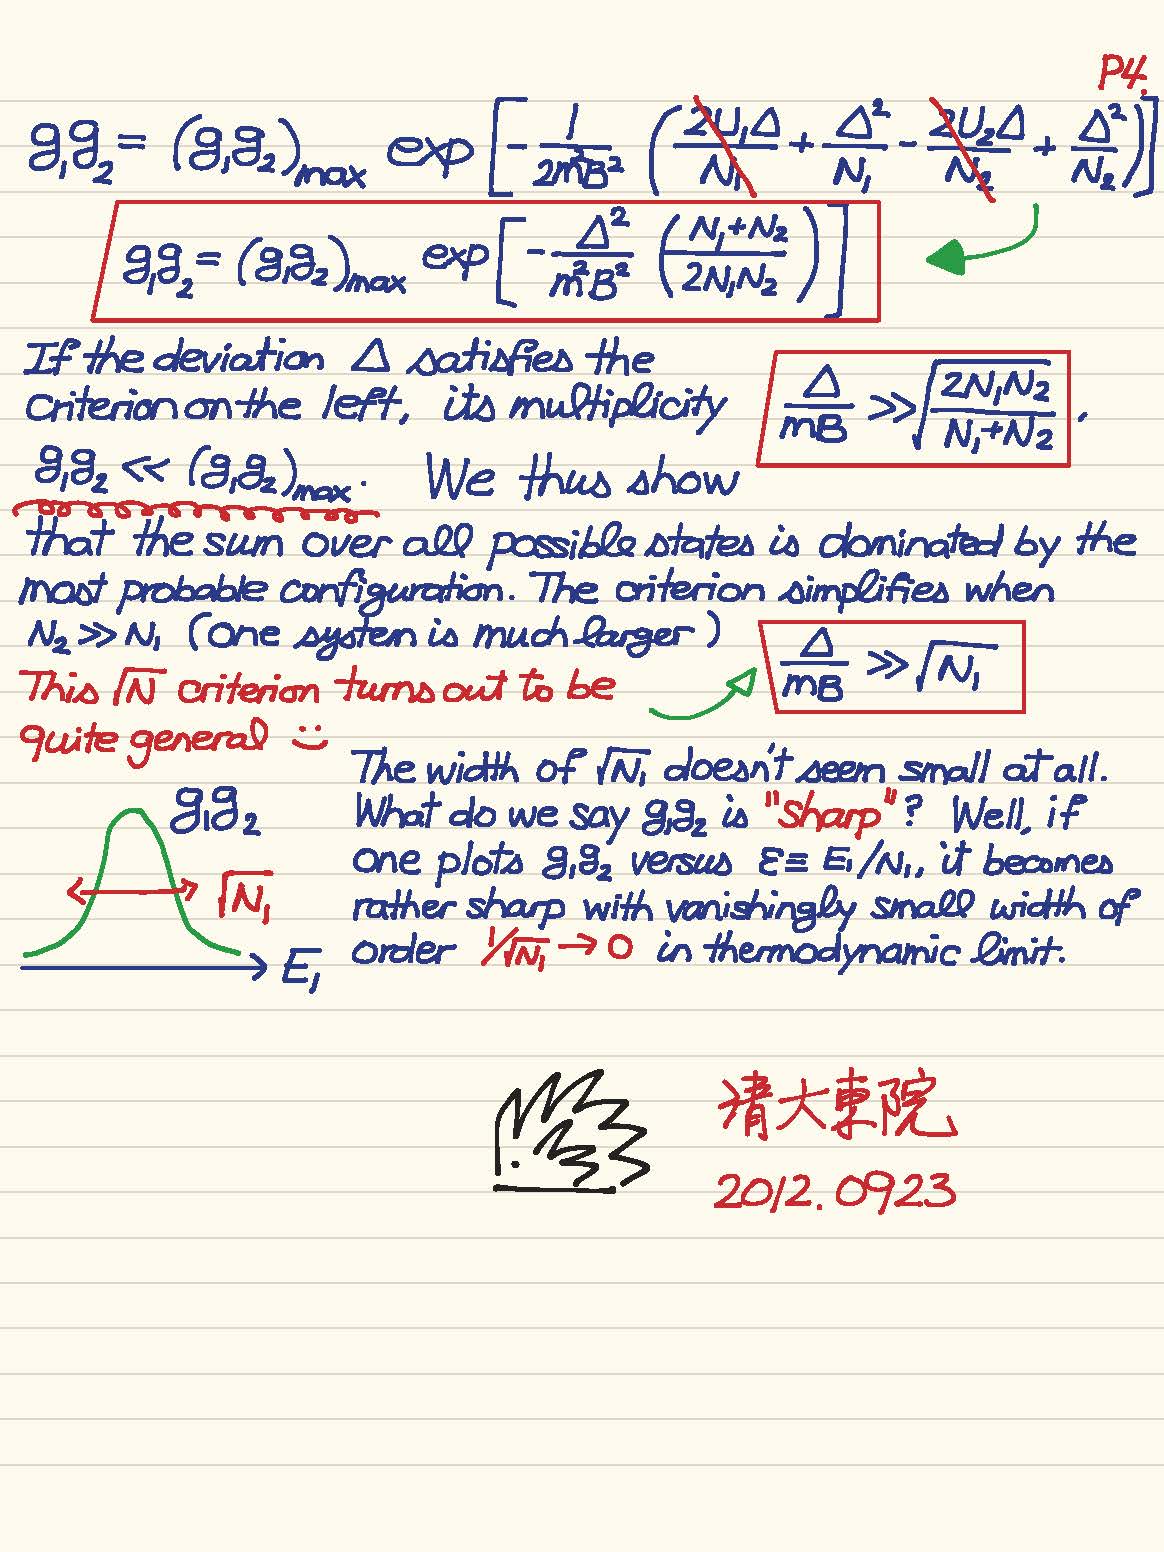 P4.
g₁g₂ = (g₁g₂)max exp[-1/(2m²B²) (2U₁Δ/N₁ + Δ²/N₁ - 2U₂Δ/N₂ + Δ²/N₂)]
g₁g₂ = (g₁g₂)max exp[-Δ²/(m²B²) ((N₁+N₂)/(2N₁N₂))]
If the deviation Δ satisfies the
criterion on the left, its multiplicity
Δ/mB >> √(2N₁N₂/(N₁+N₂)) .
g₁g₂ << (g₁g₂)max. We thus show
that the sum over all possible states is dominated by the
most probable configuration. The criterion simplifies when
N₂ >> N₁ (One system is much larger)
Δ/mB >> √N₁
This √N criterion turns out to be
quite general :)
The width of √N₁ doesn't seem small at all.
What do we say g₁g₂ is "sharp"? Well, if
one plots g₁g₂ versus ε ≡ E₁/N₁, it becomes
rather sharp with vanishingly small width of
order 1/√N₁ → 0 in thermodynamic limit.
g₁g₂
√N₁
E₁
清大東院
2012.0923